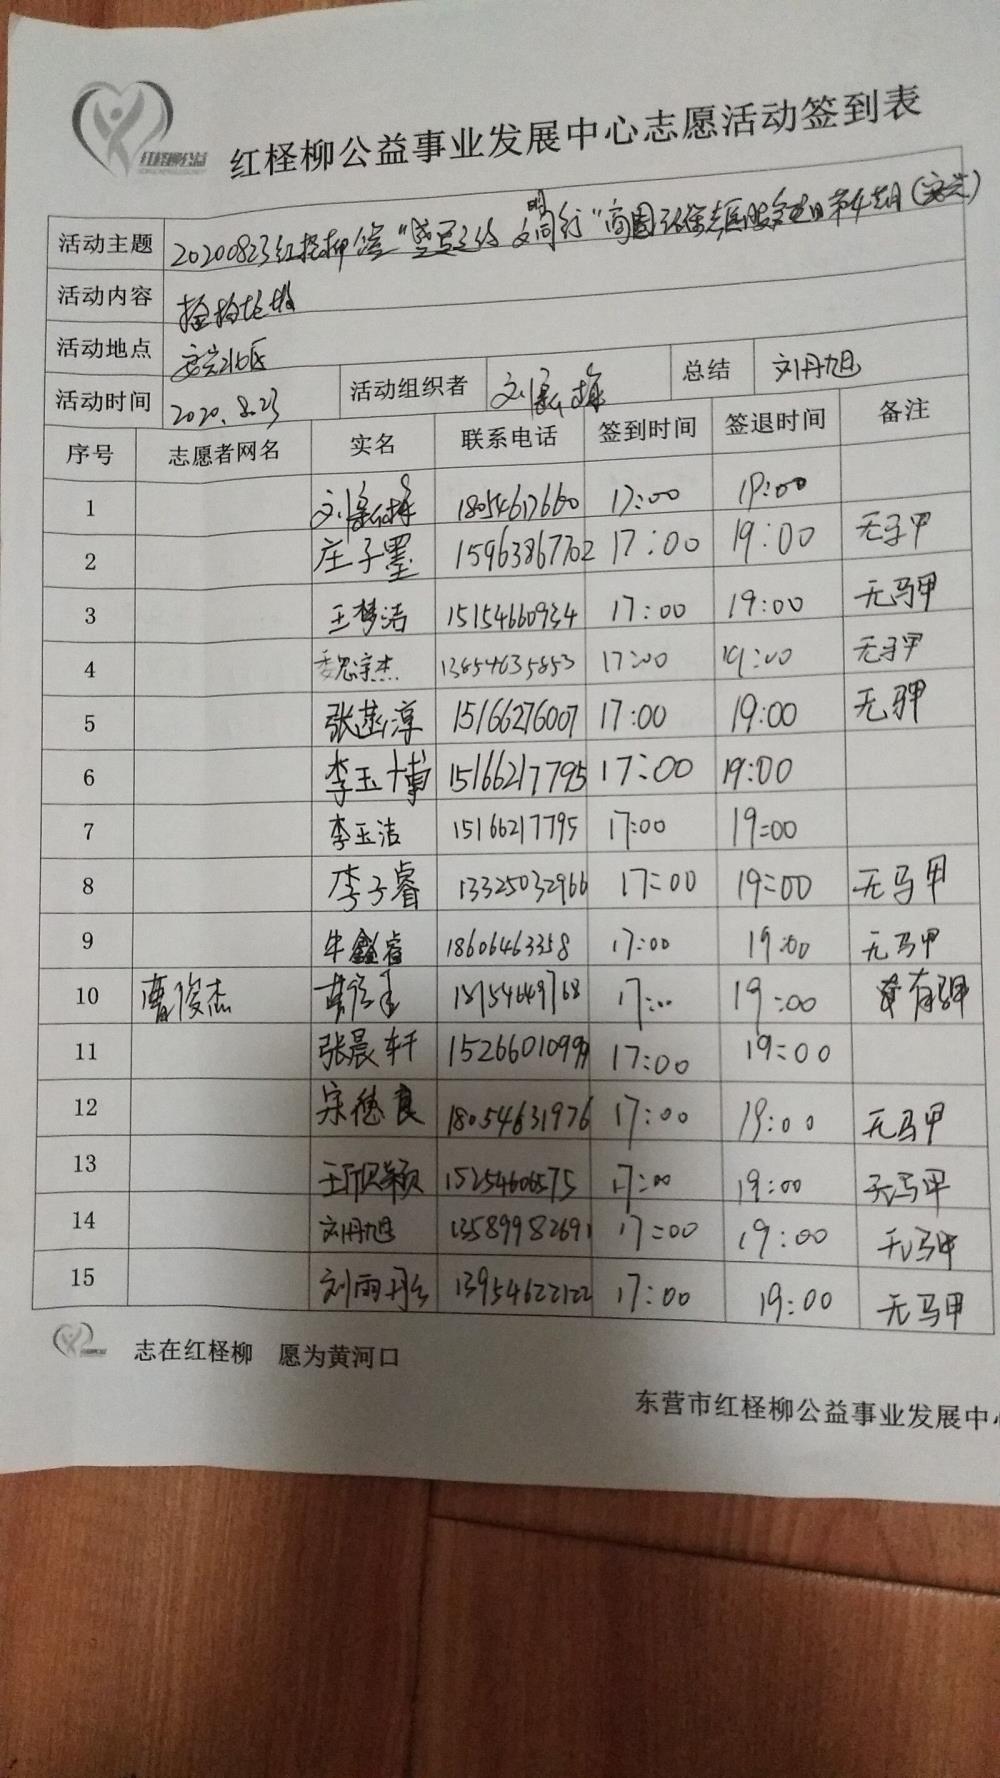 红柽柳公益
红柽柳公益事业发展中心志愿活动签到表
活动主题 20200823红柽柳公益“ 文明同行”商圈环保志愿服务活动日第4期（安兴）
活动内容 捡拾垃圾
活动地点 安兴北区
活动时间 2020.8.23 活动组织者 刘 总结 刘丹旭
序号 志愿者网名 实名 联系电话 签到时间 签退时间 备注
1 刘 18054617660 17:00 19:00
2 庄子墨 15963867702 17:00 19:00 无马甲
3 王梦洁 15154660934 17:00 19:00 无马甲
4 魏宗杰 13854635853 17:00 19:00 无马甲
5 张菡淳 15166276007 17:00 19:00 无马甲
6 李玉博 15166217795 17:00 19:00
7 李玉洁 15166217795 17:00 19:00
8 李子睿 13325032966 17:00 19:00 无马甲
9 牛鑫睿 18606463358 17:00 19:00 无马甲
10 曹俊杰 18754649768 17:00 19:00 有马甲
11 张晨轩 15266010999 17:00 19:00
12 宋德良 18054631976 17:00 19:00 无马甲
13 王颖 15254606575 17:00 19:00 无马甲
14 刘丹旭 13589982691 17:00 19:00 无马甲
15 刘雨彤 13954622122 17:00 19:00 无马甲
志在红柽柳 愿为黄河口
东营市红柽柳公益事业发展中